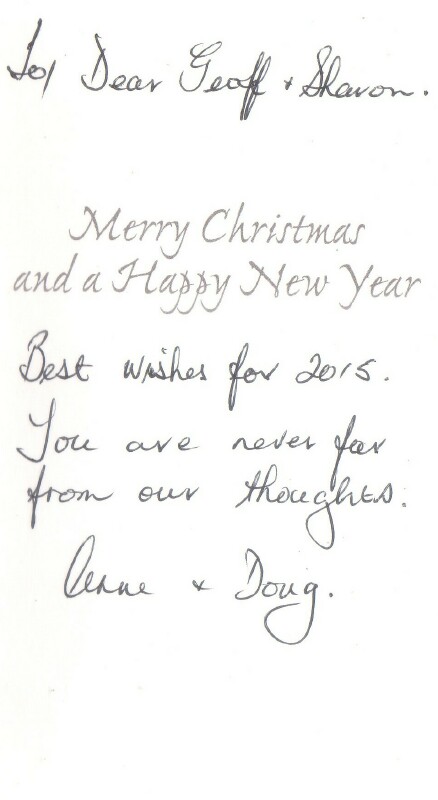 To/ Dear Geoff + Sharon.
Merry Christmas
and a Happy New Year
Best wishes for 2015.
You are never far
from our thoughts.
Anne + Doug.